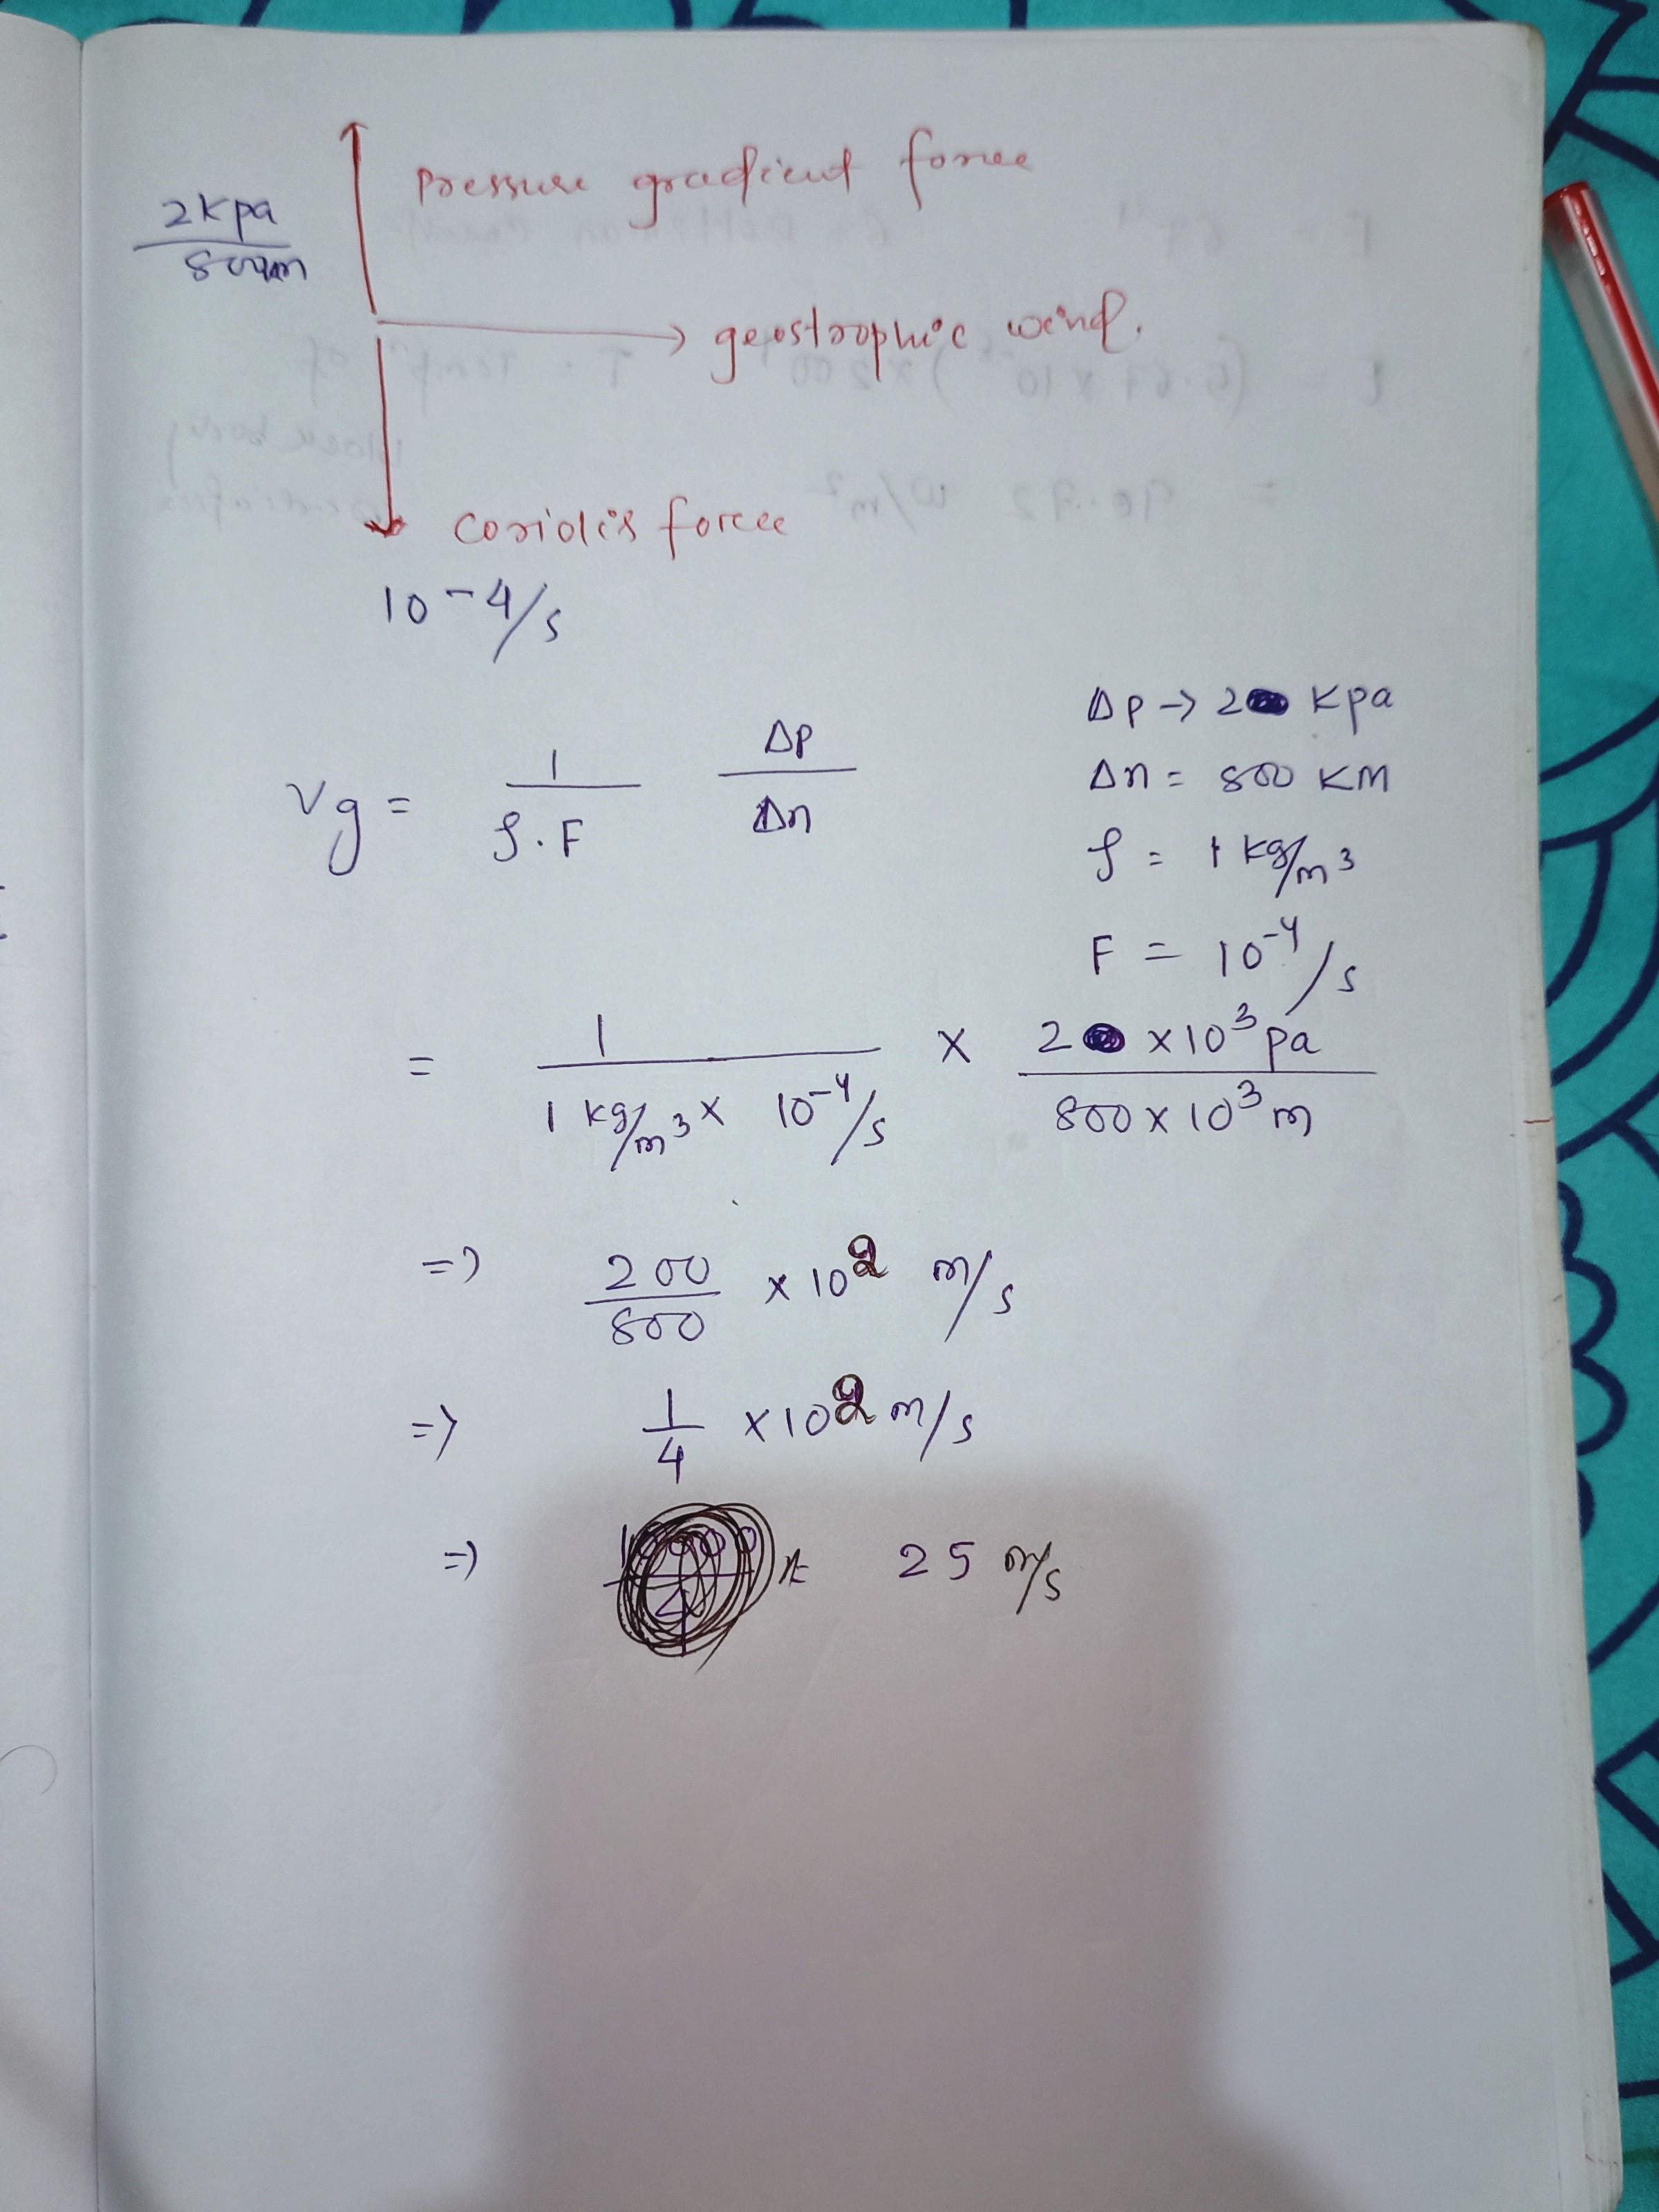 Pressure gradient force
2kpa
800km
geostrophic wind.
coriolis force
10-4/s
Δp → 2 Kpa
Δn = 800 KM
ρ = 1 kg/m³
F = 10⁻⁴/s
Vg = 1/ρ.F Δp/Δn
= 1/1 kg/m³ x 10⁻⁴/s x 2 x10³ pa/800 x 10³ m
=> 200/800 x 10² m/s
=> 1/4 x10² m/s
=> = 25 m/s